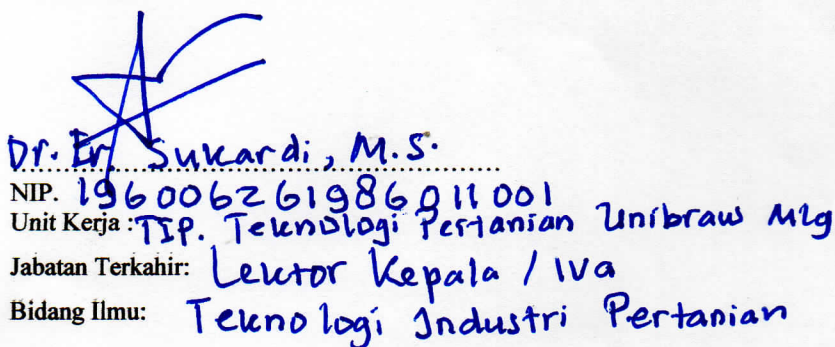 Dr. Ir. Sukardi, M.S.
NIP. 196006261986011001
Unit Kerja : TIP. Teknologi Pertanian Unibraw Mlg
Jabatan Terkahir: Lektor Kepala / IVa
Bidang Ilmu: Teknologi Industri Pertanian